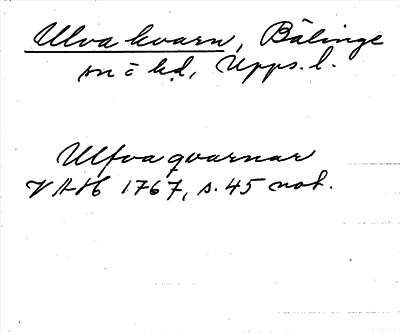 Ulva kvarn, Bälinge
sn o hd, Upps. l.
Ulfva qvarnar
VAH 1767, s. 45 not.